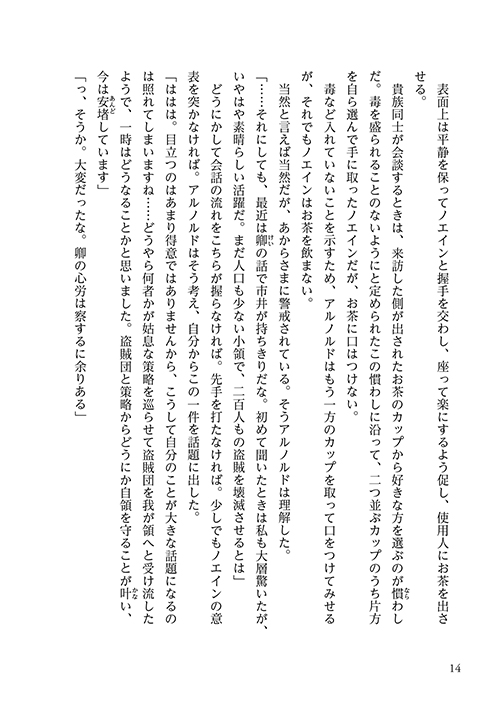 表面上は平静を保ってノエインと握手を交わし、座って楽にするよう促し、使用人にお茶を出さ
せる。
貴族同士が会談するときは、来訪した側が出されたお茶のカップから好きな方を選ぶのが慣わし
だ。毒を盛られることのないようにと定められたこの慣わしに沿って、二つ並ぶカップのうち片方
を自ら選んで手に取ったノエインだが、お茶に口はつけない。
毒など入れていないことを示すため、アルノルドはもう一方のカップを取って口をつけてみせる
が、それでもノエインはお茶を飲まない。
当然と言えば当然だが、あからさまに警戒されている。そうアルノルドは理解した。
「……それにしても、最近は卿の話で市井が持ちきりだな。初めて聞いたときは私も大層驚いたが、
いやはや素晴らしい活躍だ。まだ人口も少ない小領で、二百人もの盗賊を壊滅させるとは」
どうにかして会話の流れをこちらが握らなければ。先手を打たなければ。少しでもノエインの意
表を突かなければ。アルノルドはそう考え、自分からこの一件を話題に出した。
「ははは。目立つのはあまり得意ではありませんから、こうして自分のことが大きな話題になるの
は照れてしまいますね……どうやら何者かが姑息な策略を巡らせて盗賊団を我が領へと受け流した
ようで、一時はどうなることかと思いました。盗賊団と策略からどうにか自領を守ることが叶い、
今は安堵しています」
「っ、そうか。大変だったな。卿の心労は察するに余りある」
14